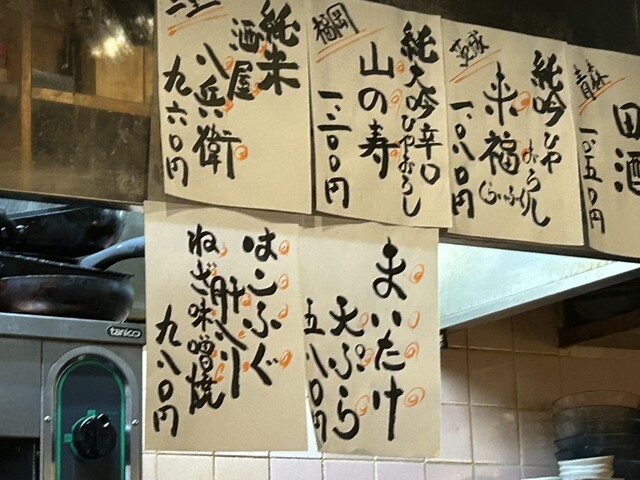 青森
田酒
一、〇五〇円
茨城
純吟ひやおろし
来福
(らいふく)
一、〇八〇円
福岡
純大吟辛口ひやおろし
山の寿
一、三〇〇円
純米
酒屋
八兵衛
九六〇円
まいたけ
天ぷら
五八〇円
はこふぐ
肝入り
ねぎ味噌焼
九八〇円
tanico